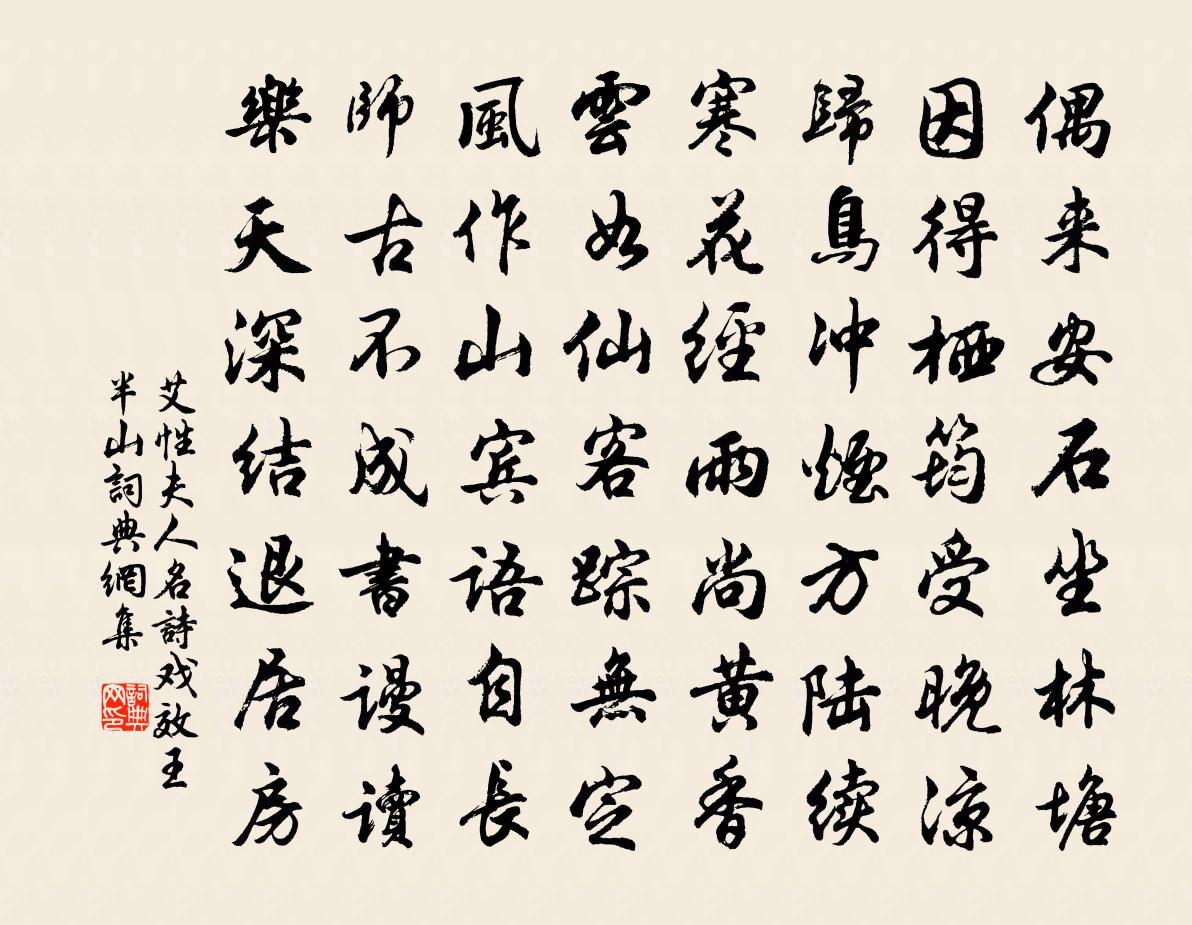 偶来安石坐林塘
因得栖筠受晚凉
歸鳥冲煙方陆续
寒花經雨尚黄香
雲如仙客踪無定
風作山宾语自長
師古不成書谩讀
樂天深结退居房
艾性夫人名詩戏效王
半山詞典網集
詞典网印